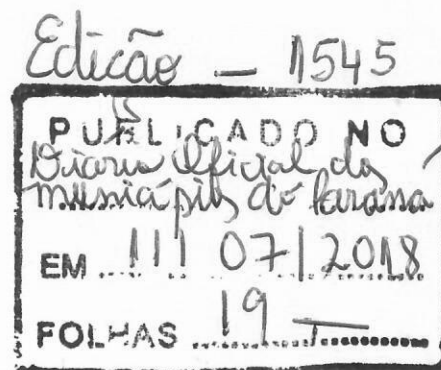 Edição - 1545
PUBLICADO NO
Diario Oficial dos
municípios do Parana
EM 11/07/2018
FOLHAS 19